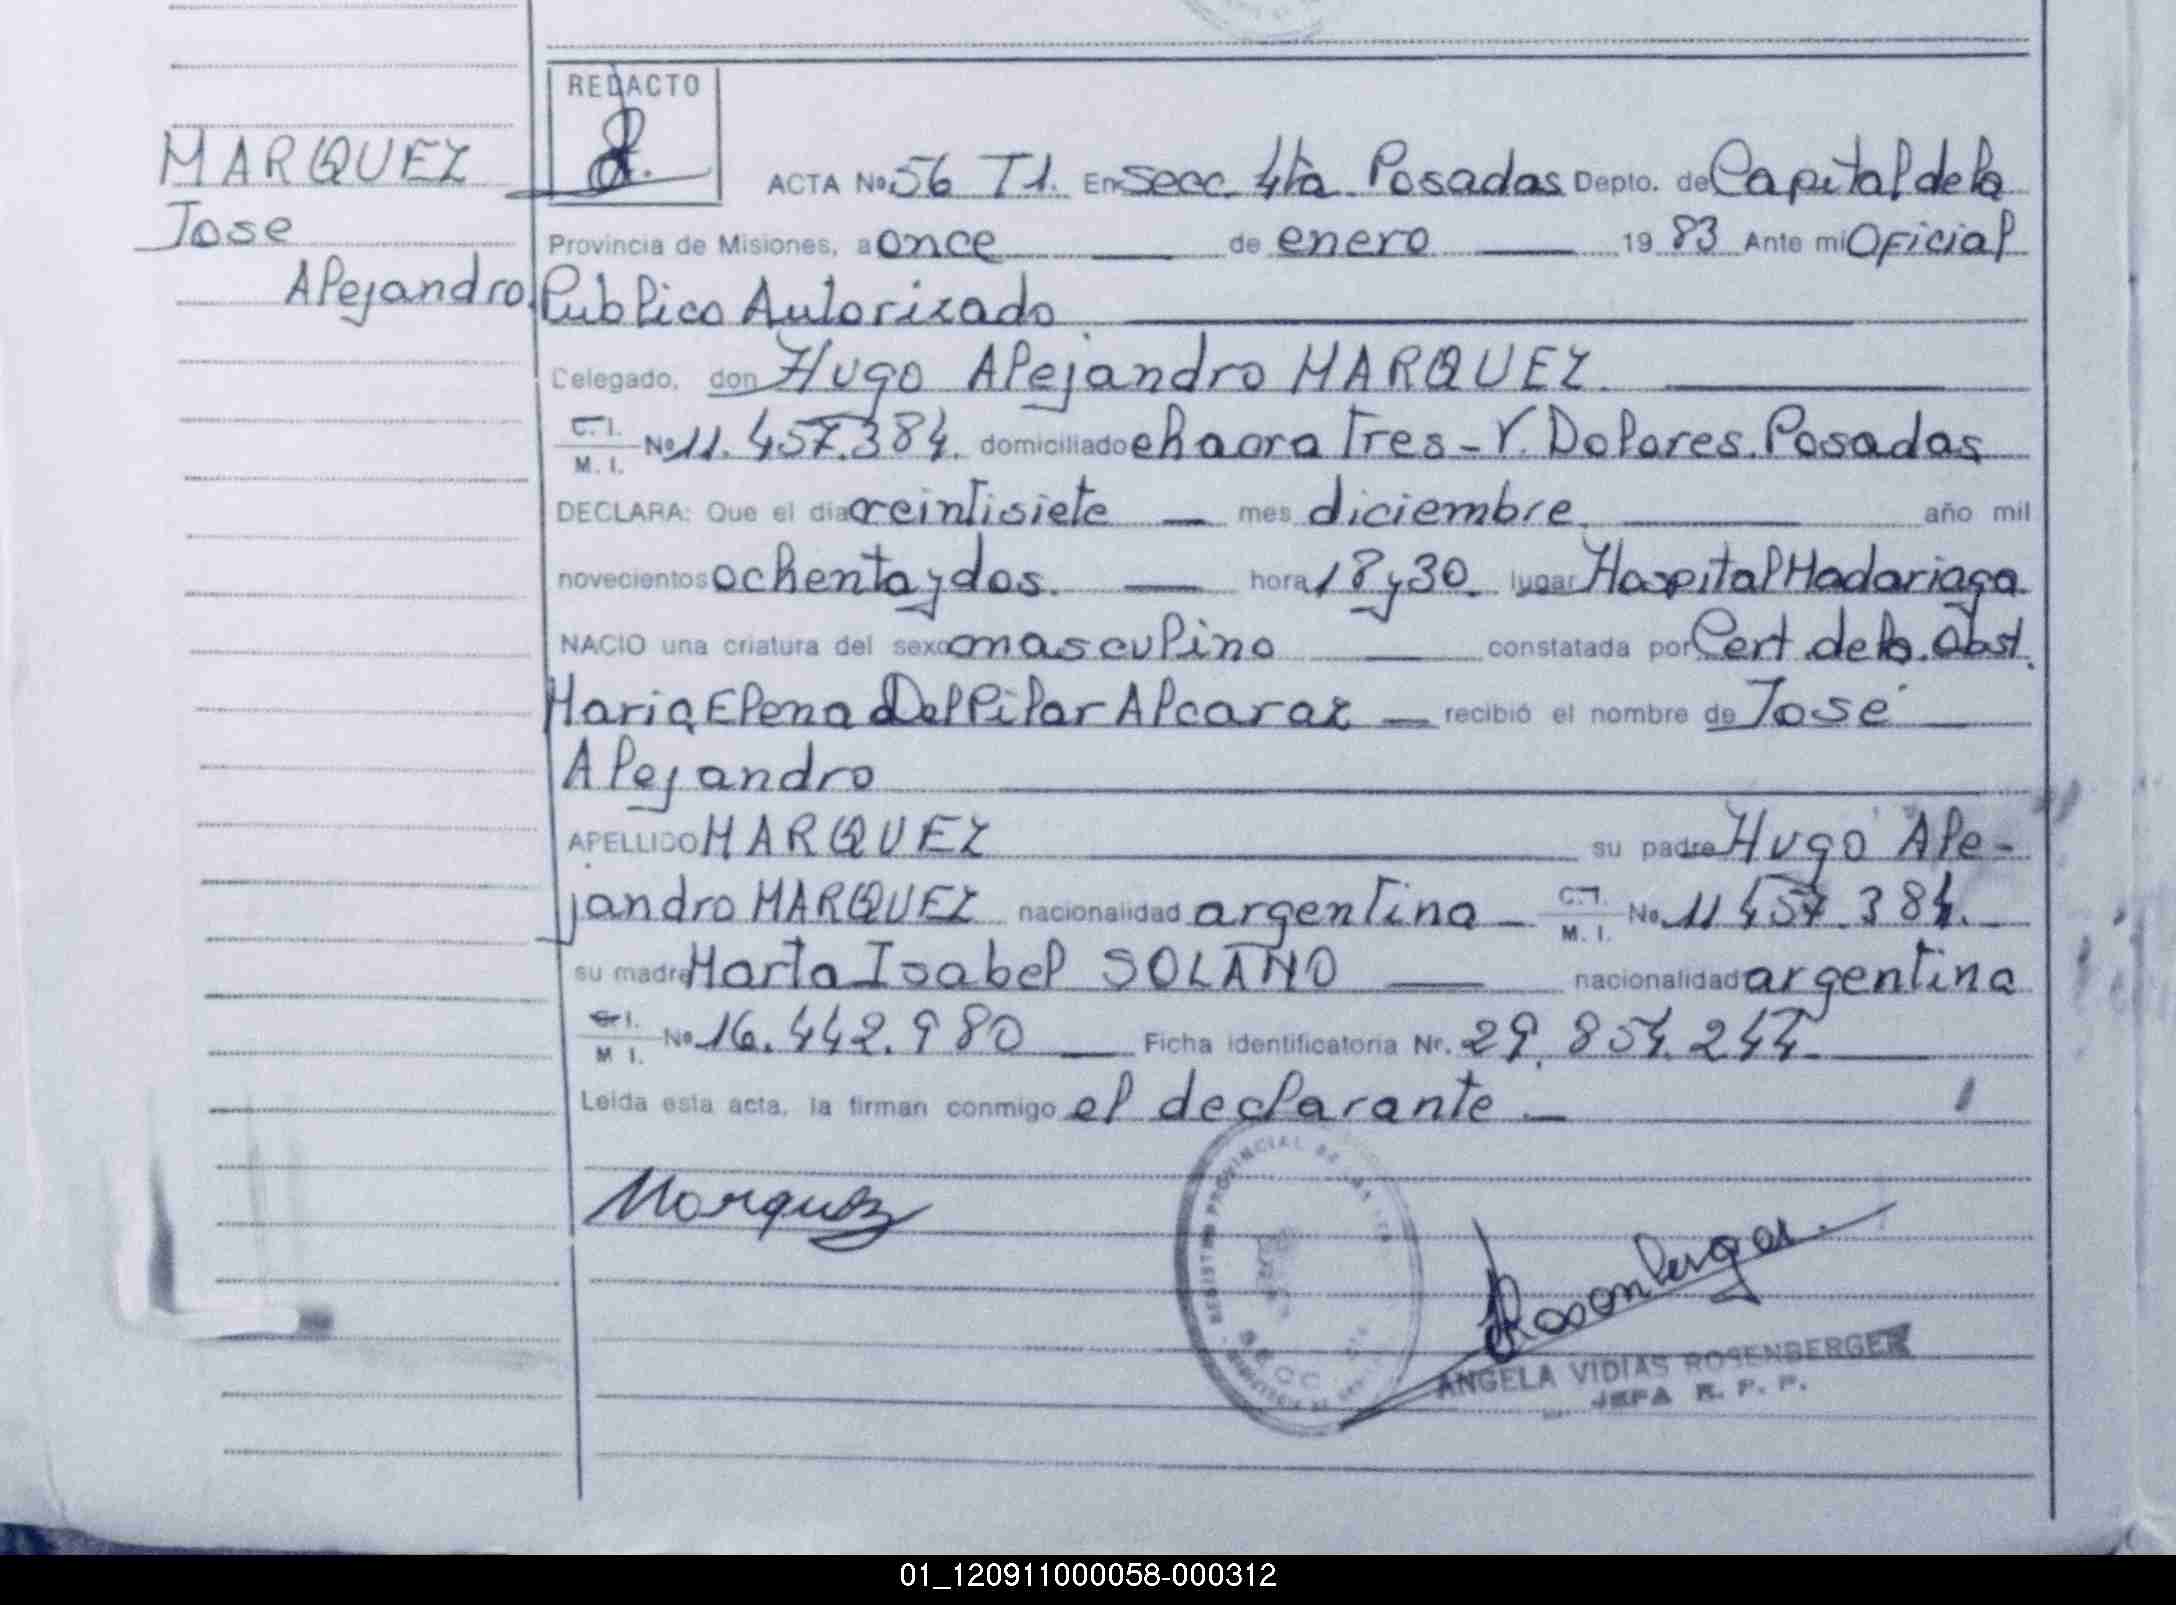 REDACTO
MARQUEZ
Jose
Alejandro.
ACTA Nº 56 T1. En Secc. 4ta Posadas Depto. de Capital de la
Provincia de Misiones, a once de enero 19 83 Ante mi Oficial
Publico Autorizado
Delegado, don Hugo Alejandro MARQUEZ.
C. I.
M. I. Nº 11.457.384. domiciliado chacra Tres - V. Dolores. Posadas
DECLARA: Que el día veintisiete mes diciembre. año mil
novecientos ochenta y dos. hora 18 y 30. lugar Hospital Madariaga
NACIO una criatura del sexo masculino constatada por Cert. de la. Obst.
Maria Elena Del Pilar Alcaraz recibió el nombre de José
Alejandro
APELLIDO MARQUEZ su padre Hugo Ale-
jandro MARQUEZ nacionalidad argentina C. I.
M. I. Nº 11 457.384.
su madre Marta Isabel SOLANO nacionalidad argentina
C. I.
M. I. Nº 16.442.980 Ficha identificatoria Nr. 29.854.244
Leida esta acta, la firman conmigo el declarante.
Marquez
REGISTRO PROVINCIAL DE LAS
SECC
Rosenberger
ANGELA VIDIAS ROSENBERGER
JEFA R. P. P.
01_120911000058-000312